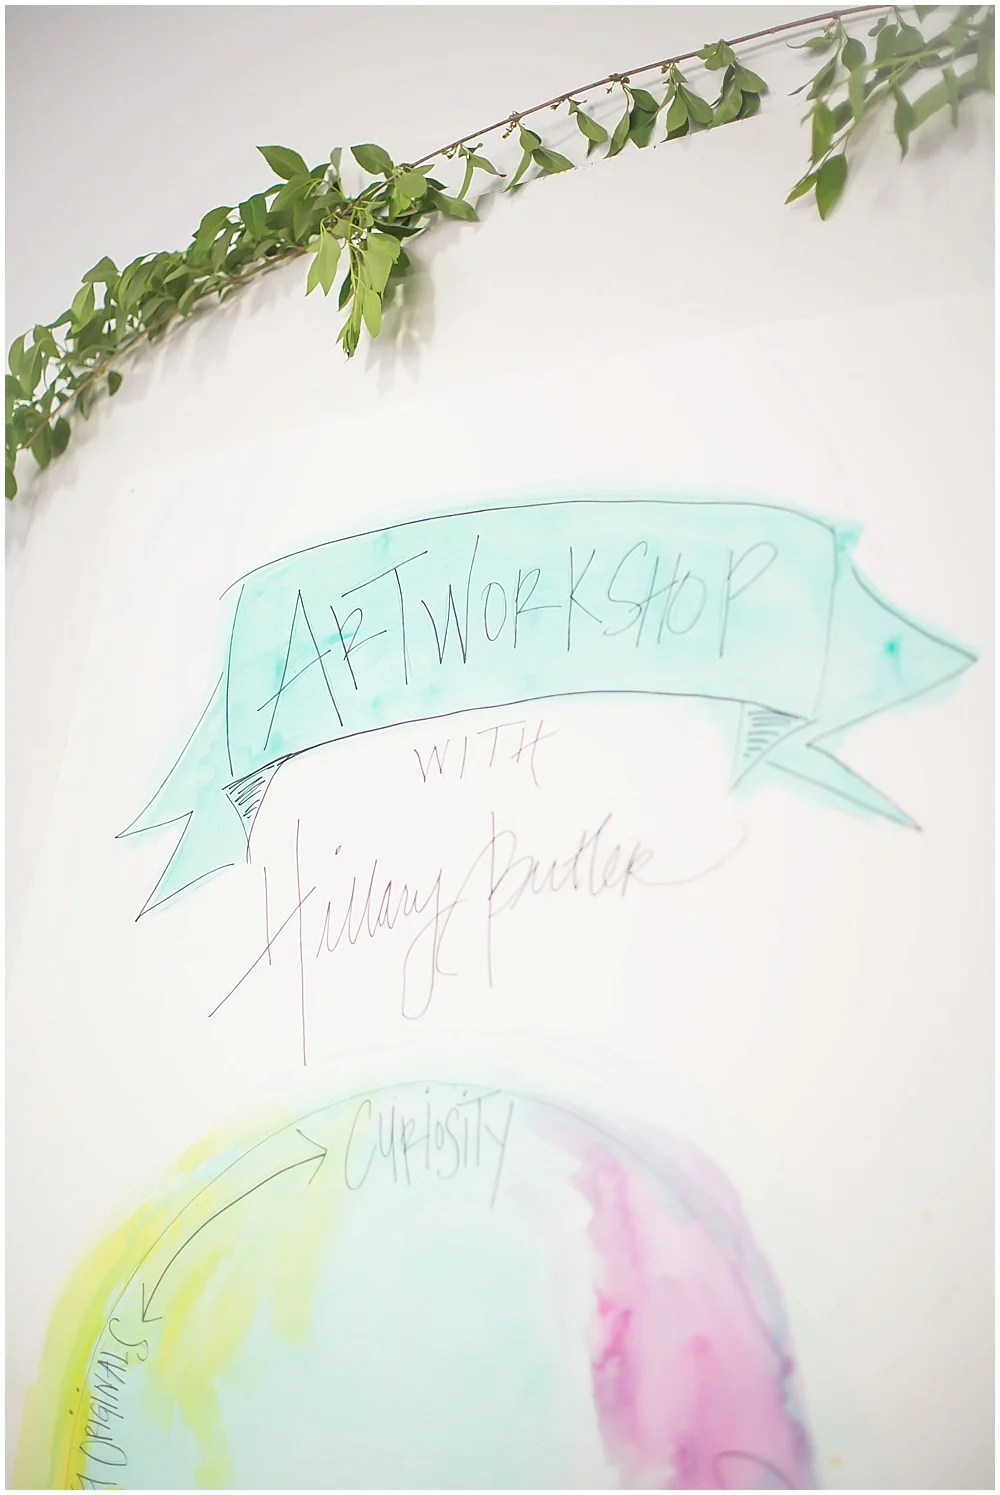 ART WORKSHOP
WITH
Hillary Butler
CURIOSITY
ORIGINALS